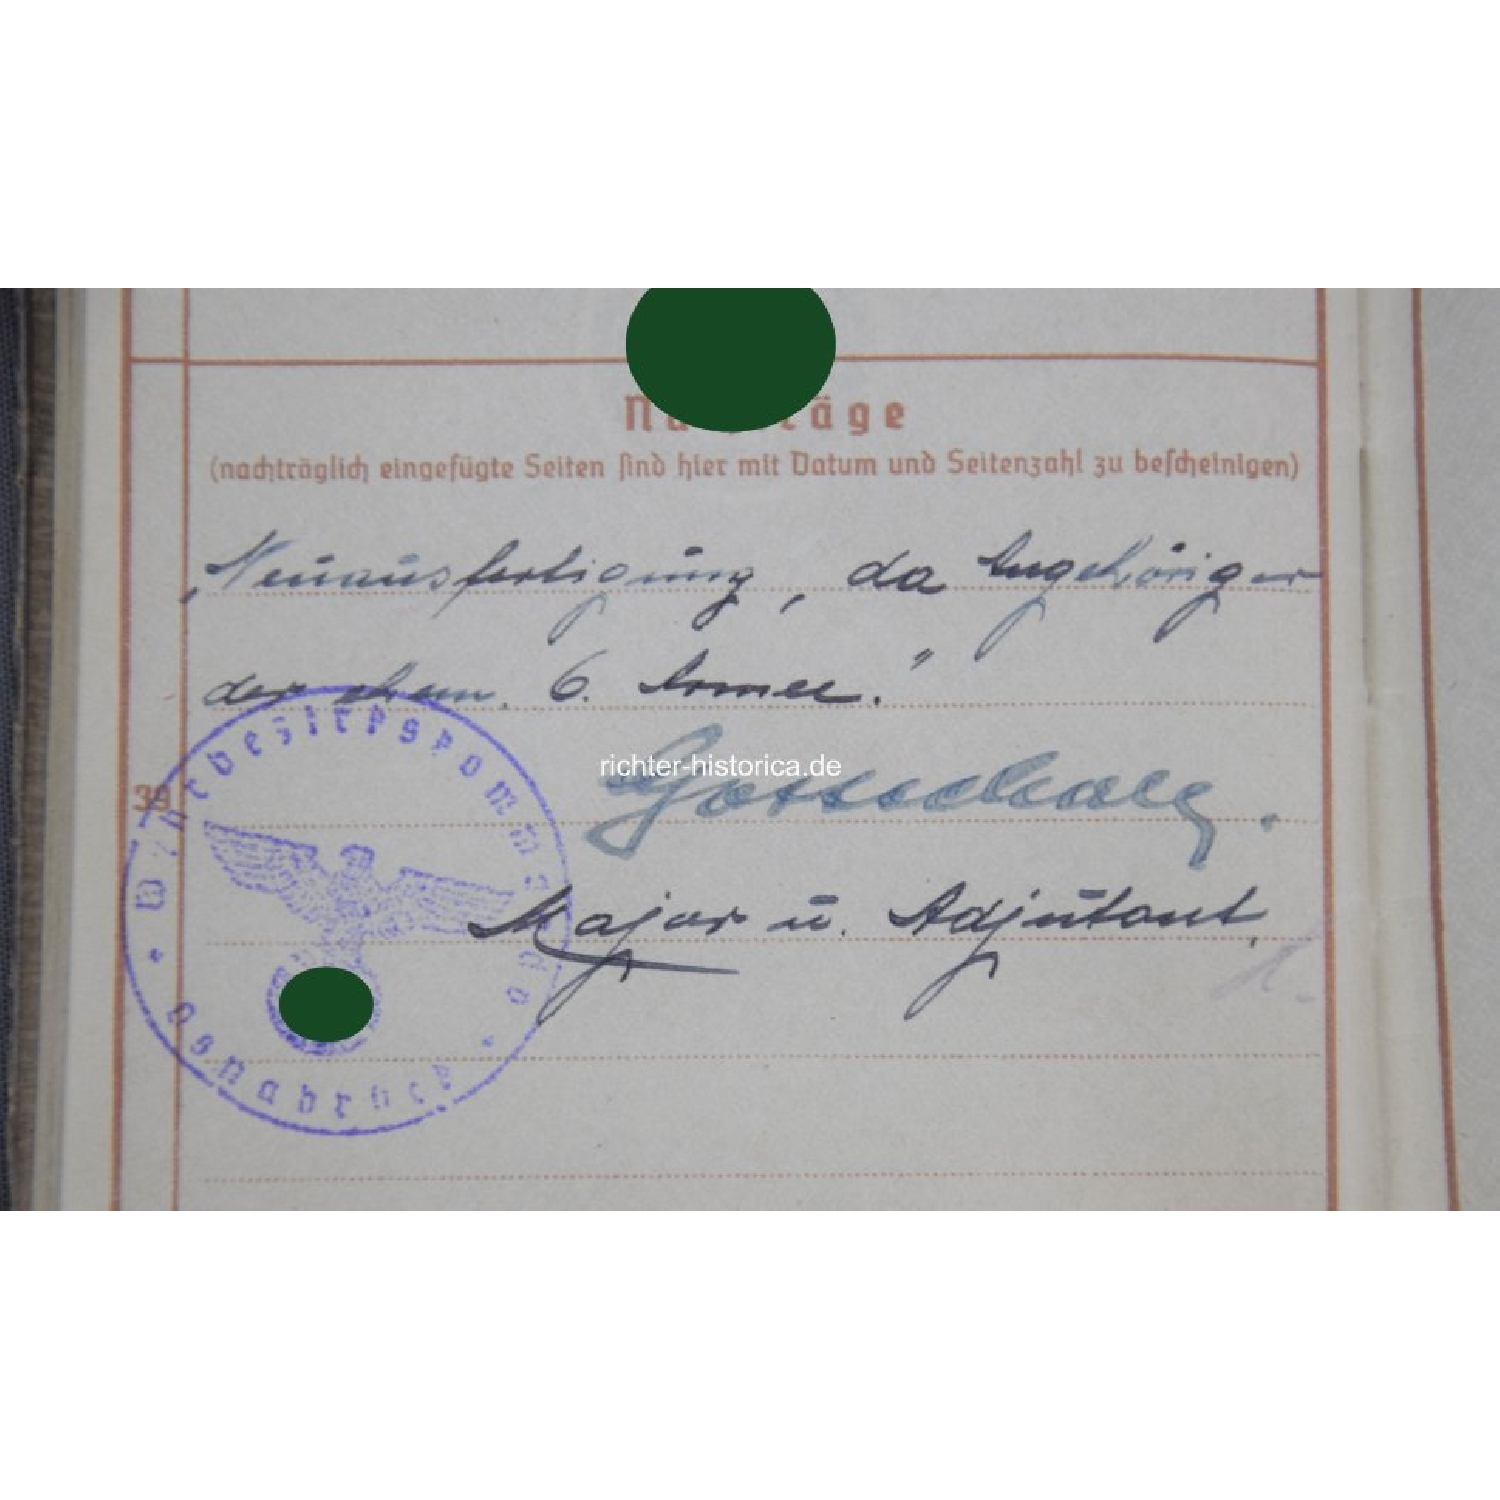 Nachträge
(nachträglich eingefügte Seiten sind hier mit Datum und Seitenzahl zu bescheinigen)
„Neuausfertigung, da Angehöriger
der ehem. 6. Armee."
richter-historica.de
39
Major u. Adjutant.
Wehrbezirkskommando
Osnabrück